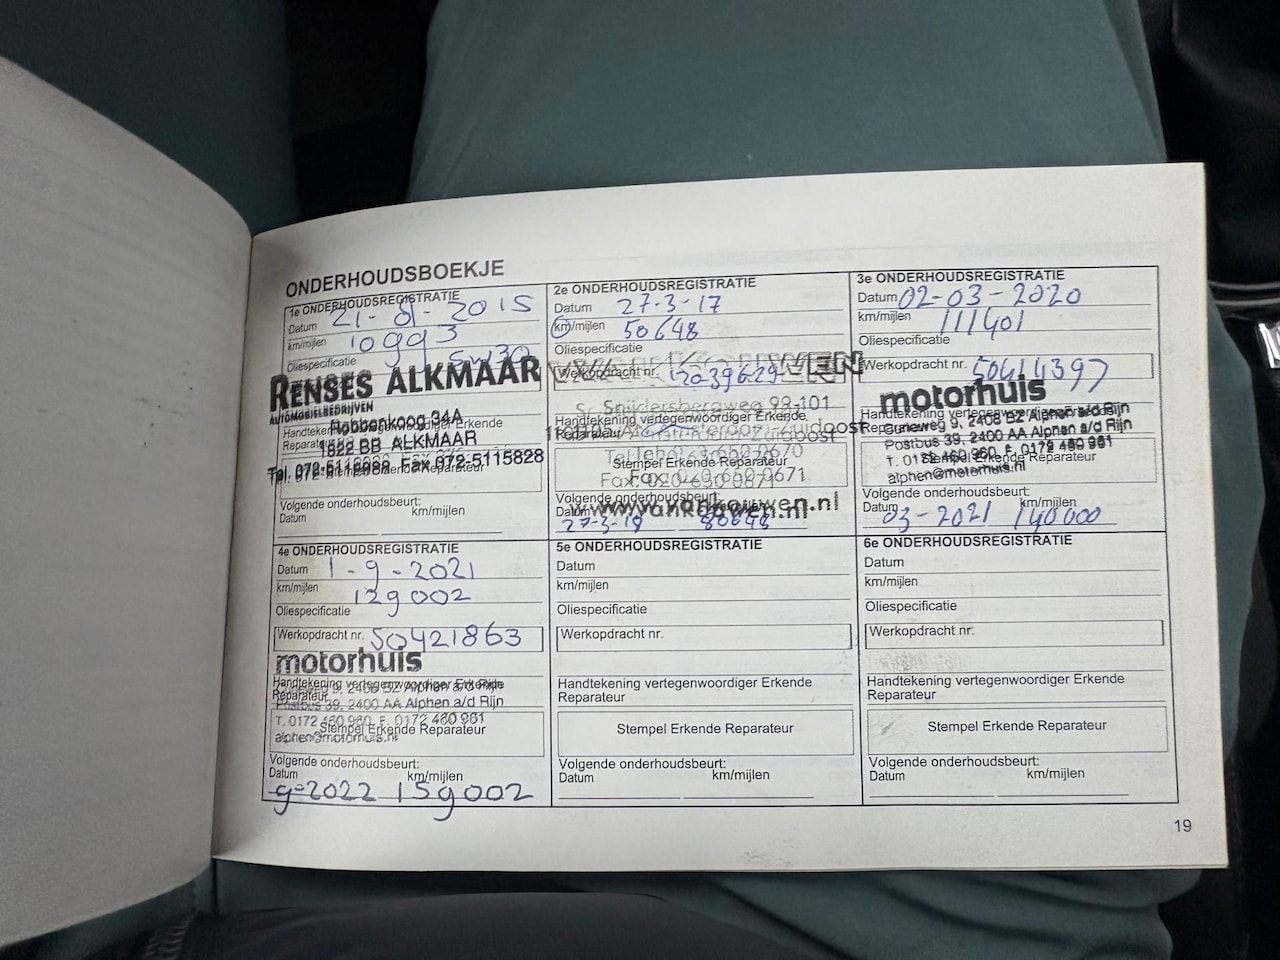 ONDERHOUDSBOEKJE
1e ONDERHOUDSREGISTRATIE
Datum 21-8-2015
km/mijlen 10993
Oliespecificatie 5W30
RENSES ALKMAAR
AUTOMOBIELBEDRIJVEN
Robbenkoog 34A
Handtekening vertegenwoordiger Erkende
Reparateur
1822 BB ALKMAAR
Tel. 072-5112088 Fax 072-5115828
Volgende onderhoudsbeurt:
Datum km/mijlen
2e ONDERHOUDSREGISTRATIE
Datum 27-3-17
km/mijlen 50648
Oliespecificatie
Werkopdracht nr. 2039629
S. Snijdersbergweg 99-101
Handtekening vertegenwoordiger Erkende
Reparateur
Zuidoost
Stempel Erkende Reparateur
www.vankouwen.nl
Volgende onderhoudsbeurt:
Datum
27-3-18 80648
3e ONDERHOUDSREGISTRATIE
Datum 02-03-2020
km/mijlen 111401
Oliespecificatie
Werkopdracht nr. 50414397
motorhuis
Handtekening vertegenwoordiger
Curieweg 9, 2408 BZ Alphen a/d Rijn
Postbus 39, 2400 AA Alphen a/d Rijn
T. 0172 460 960 F. 0172 460 961
Stempel Erkende Reparateur
alphen@motorhuis.nl
Volgende onderhoudsbeurt:
Datum km/mijlen
03-2021 140000
4e ONDERHOUDSREGISTRATIE
Datum 1-9-2021
km/mijlen 129002
Oliespecificatie
Werkopdracht nr. 50421863
motorhuis
Handtekening vertegenwoordiger Erkende
Reparateur
9, 2408 BZ Alphen a/d Rijn
Postbus 39, 2400 AA Alphen a/d Rijn
T. 0172 460 960 F. 0172 460 961
Stempel Erkende Reparateur
alphen@motorhuis.nl
Volgende onderhoudsbeurt:
Datum km/mijlen
9-2022 159002
5e ONDERHOUDSREGISTRATIE
Datum
km/mijlen
Oliespecificatie
Werkopdracht nr.
Handtekening vertegenwoordiger Erkende
Reparateur
Stempel Erkende Reparateur
Volgende onderhoudsbeurt:
Datum km/mijlen
6e ONDERHOUDSREGISTRATIE
Datum
km/mijlen
Oliespecificatie
Werkopdracht nr.
Handtekening vertegenwoordiger Erkende
Reparateur
Stempel Erkende Reparateur
Volgende onderhoudsbeurt:
Datum km/mijlen
19